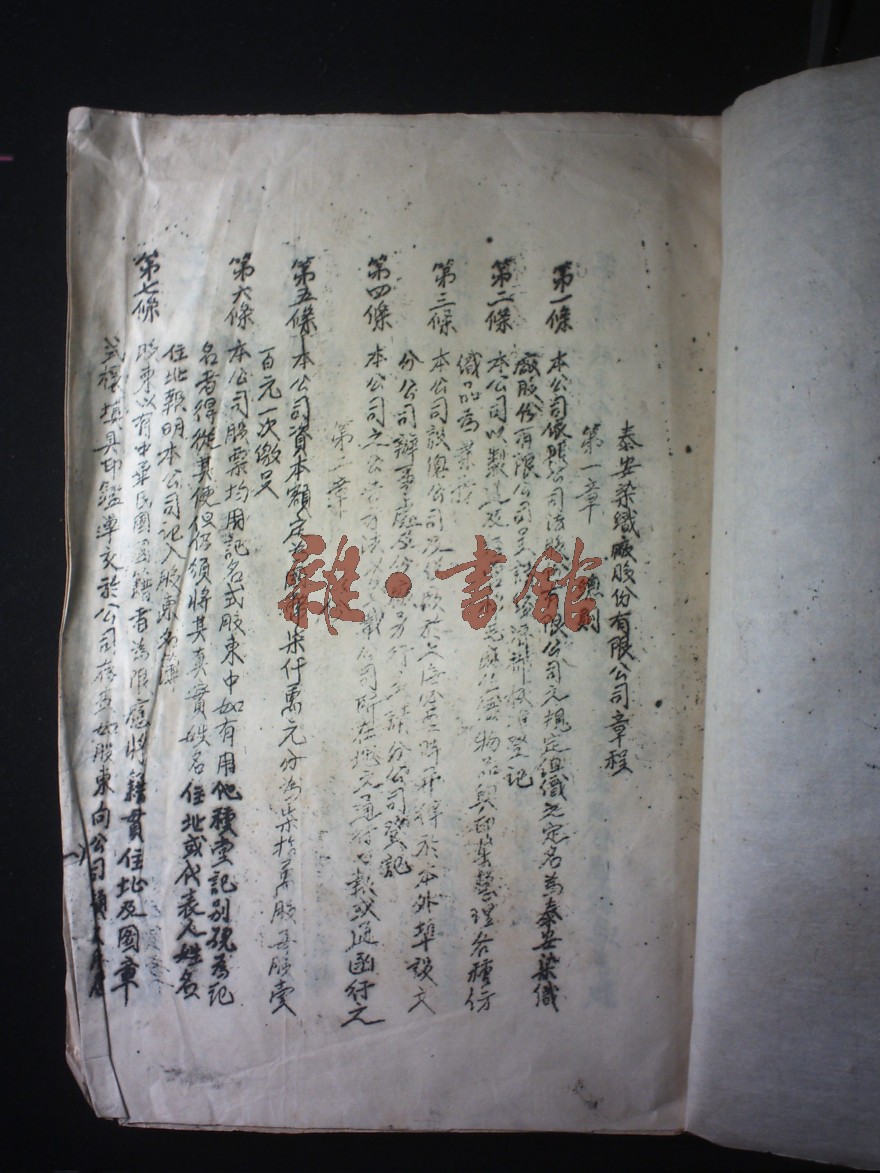 泰安染織廠股份有限公司章程
第一章 總則
第一條 本公司依照公司法股份有限公司之規定組織之定名為泰安染織
廠股份有限公司呈請經濟部核准登記
第二條 本公司以製造及 物品與印染整理各種紡
織品為業務
第三條 本公司設總公司及 於上海必要時并得於本外埠設立
分公司辦事處及分廠另行呈請分公司登記
第四條 本公司之公告方法以 公司所在地之通行日報或通函行之
第二章
第五條 本公司資本額定為 柒仟萬元分為柒拾萬股每股壹
百元一次繳足
第六條 本公司股票均用記名式股東中如有用他種堂記別號為記
名者得從其便但仍須將其真實姓名住址或代表人姓名
住址報明本公司記入股東名簿
第七條 股東以有中華民國國籍者為限應將籍貫住址及圖章
式樣填具印鑑送交於公司存查如股東向公司領
雜·書館